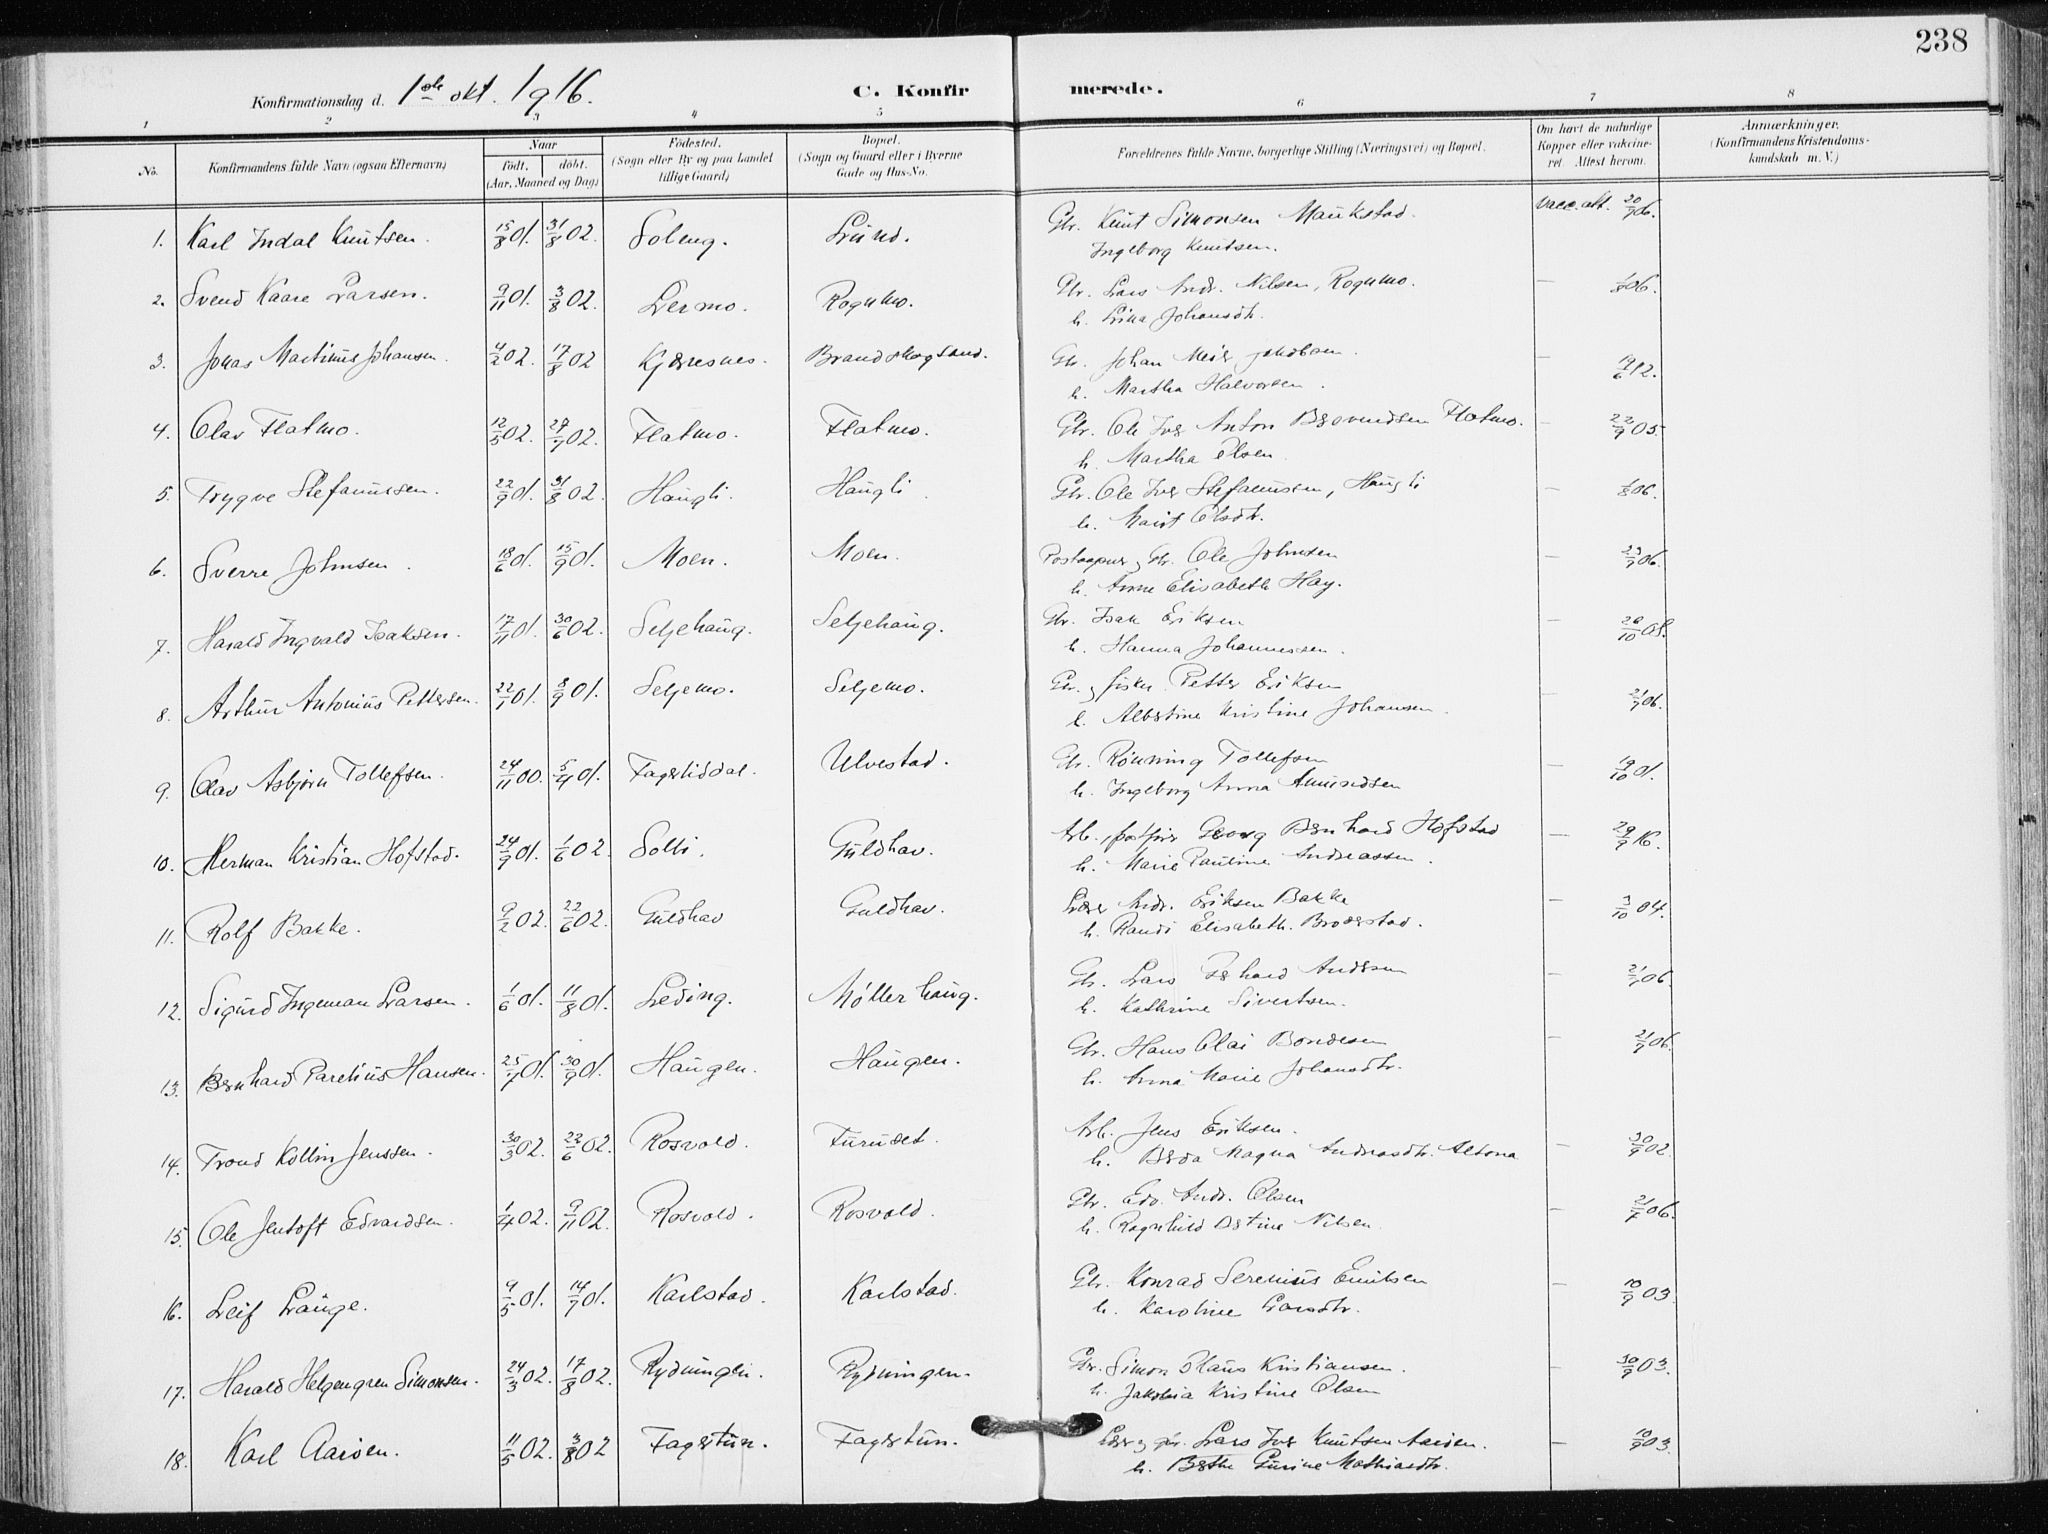 238
Konfirmationsdag d. 1ste okt. 1916. C. Konfirmerede.
1 2 3 4 5 6 7 8
No. Konfirmandens fulde Navn (ogsaa Efternavn) Naar født. døbt. (Aar, Maaned og Dag) Fødested. (Sogn eller By og paa Landet tillige Gaard) Bopæl. (Sogn og Gaard eller i Byerne Gade og Hus-No. Forældrenes fulde Navne, borgerlige Stilling (Næringsvei) og Bopæl. Om havt de naturlige Kopper eller vakcineret. Attest herom. Anmærkninger. (Konfirmandens Kristendomskundskab m. V.)
1. Karl Indal Knutsen. 15/8 01. 31/8 02. Soleng. Lund. Gbr. Knut Simonsen Maukstad. Vacc. att. 20/9 06.
Ingeborg Knutsen.
2. Svend Kaare Larsen. 9/11 01. 3/8 02. Lermo. Rognmo. Gbr. Lars Andr. Nilsen, Rognmo. — 1/8 06.
h. Lina Johansdtr.
3. Jonas Martinus Johansen. 4/2 02. 17/8 02 Kjærresnes. Brandskogland. Gbr. Johan Meier Jakobsen. — 19/6 12.
h. Martha Halvorsen.
4. Olav Flatmo. 12/5 02. 27/7 02. Flatmo. Flatmo. Gbr. Ole Iver Anton Bervendsen Flatmo. — 22/9 05.
h. Martha Olsen.
5. Trygve Stefanussen. 22/9 01. 31/8 02. Haugli. Haugli. Gbr. Ole Iver Stefanussen, Haugli — 1/8 06.
h. Marit Olsdtr.
6. Sverre Johnsen. 18/6 01. 15/9 01. Moen. Moen. Postaapner, Gbr. Ole Johnsen — 23/7 06.
h. Anne Elisabeth Hay.
7. Harald Ingvald Isaksen. 17/11 01. 30/6 02. Seljehaug. Seljehaug. Gbr. Isak Eriksen — 26/10 05.
h. Hanna Johannessen.
8. Arthur Antonius Pettersen. 22/7 01. 8/9 01. Seljemo. Seljemo. Gbr. og fisker Petter Eriksen — 21/7 06.
h. Albertine Kristine Johansen.
9. Olav Asbjørn Tollefsen. 24/11 00. 5/4 01. Fagerliddal. Ulvestad. Gbr. Rønning Tollefsen — 19/10 01.
h. Ingeborg Anna Amundsen
10. Herman Kristian Hofstad. 24/9 01. 1/6 02. Solli. Guldhav. Arb., postfører Georg Bernhard Hofstad — 29/9 16.
h. Marie Pauline Andreassen.
11. Rolf Bakke. 9/2 02. 22/6 02. Guldhav Guldhav. Lærer Andr. Eriksen Bakke — 3/10 04.
h. Randi Elisabeth Broderstad.
12. Sigurd Ingeman Larsen. 1/6 01. 11/8 01. Leding. Møllerhaug. Gbr. Lars Gerhard Andersen — 21/7 06.
h. Kathrine Sivertsen.
13. Bernhard Parelius Hansen. 25/7 01. 30/9 01. Haugen. Haugen. Gbr. Hans Olai Bondesen — 21/7 06.
h. Anna Marie Johansdtr.
14. Trond Kollin Jenssen. 30/3 02. 22/6 02. Rosvold. Furuset. Arb. Jens Eriksen. — 30/9 02.
h. Berda Magna Andreasdtr. Altona
15. Ole Jentoft Edvardsen. 1/4 02. 9/11 02. Rosvold. Rosvold. Gbr. Edv. Andr. Olsen — 21/7 06.
h. Ragnhild Bertine Nilsen.
16. Leif Lange. 9/5 01. 14/7 01. Karlstad. Karlstad. Gbr. Konrad Serenius Emilsen — 10/9 03.
h. Karoline Larsdtr.
17. Harald Helgengren Simonsen. 24/3 02. 17/8 02. Rydningen. Rydningen. Gbr. Simon Klaus Kristiansen. — 30/9 03.
h. Jakobia Kristine Olsen
18. Karl Aarøen. 11/5 02. 3/8 02 Fagertun. Fagertun. Lærer og gbr. Lars Iver Knutsen Aarøen. — 10/9 03.
h. Berthe Gurine Mathiasdtr.